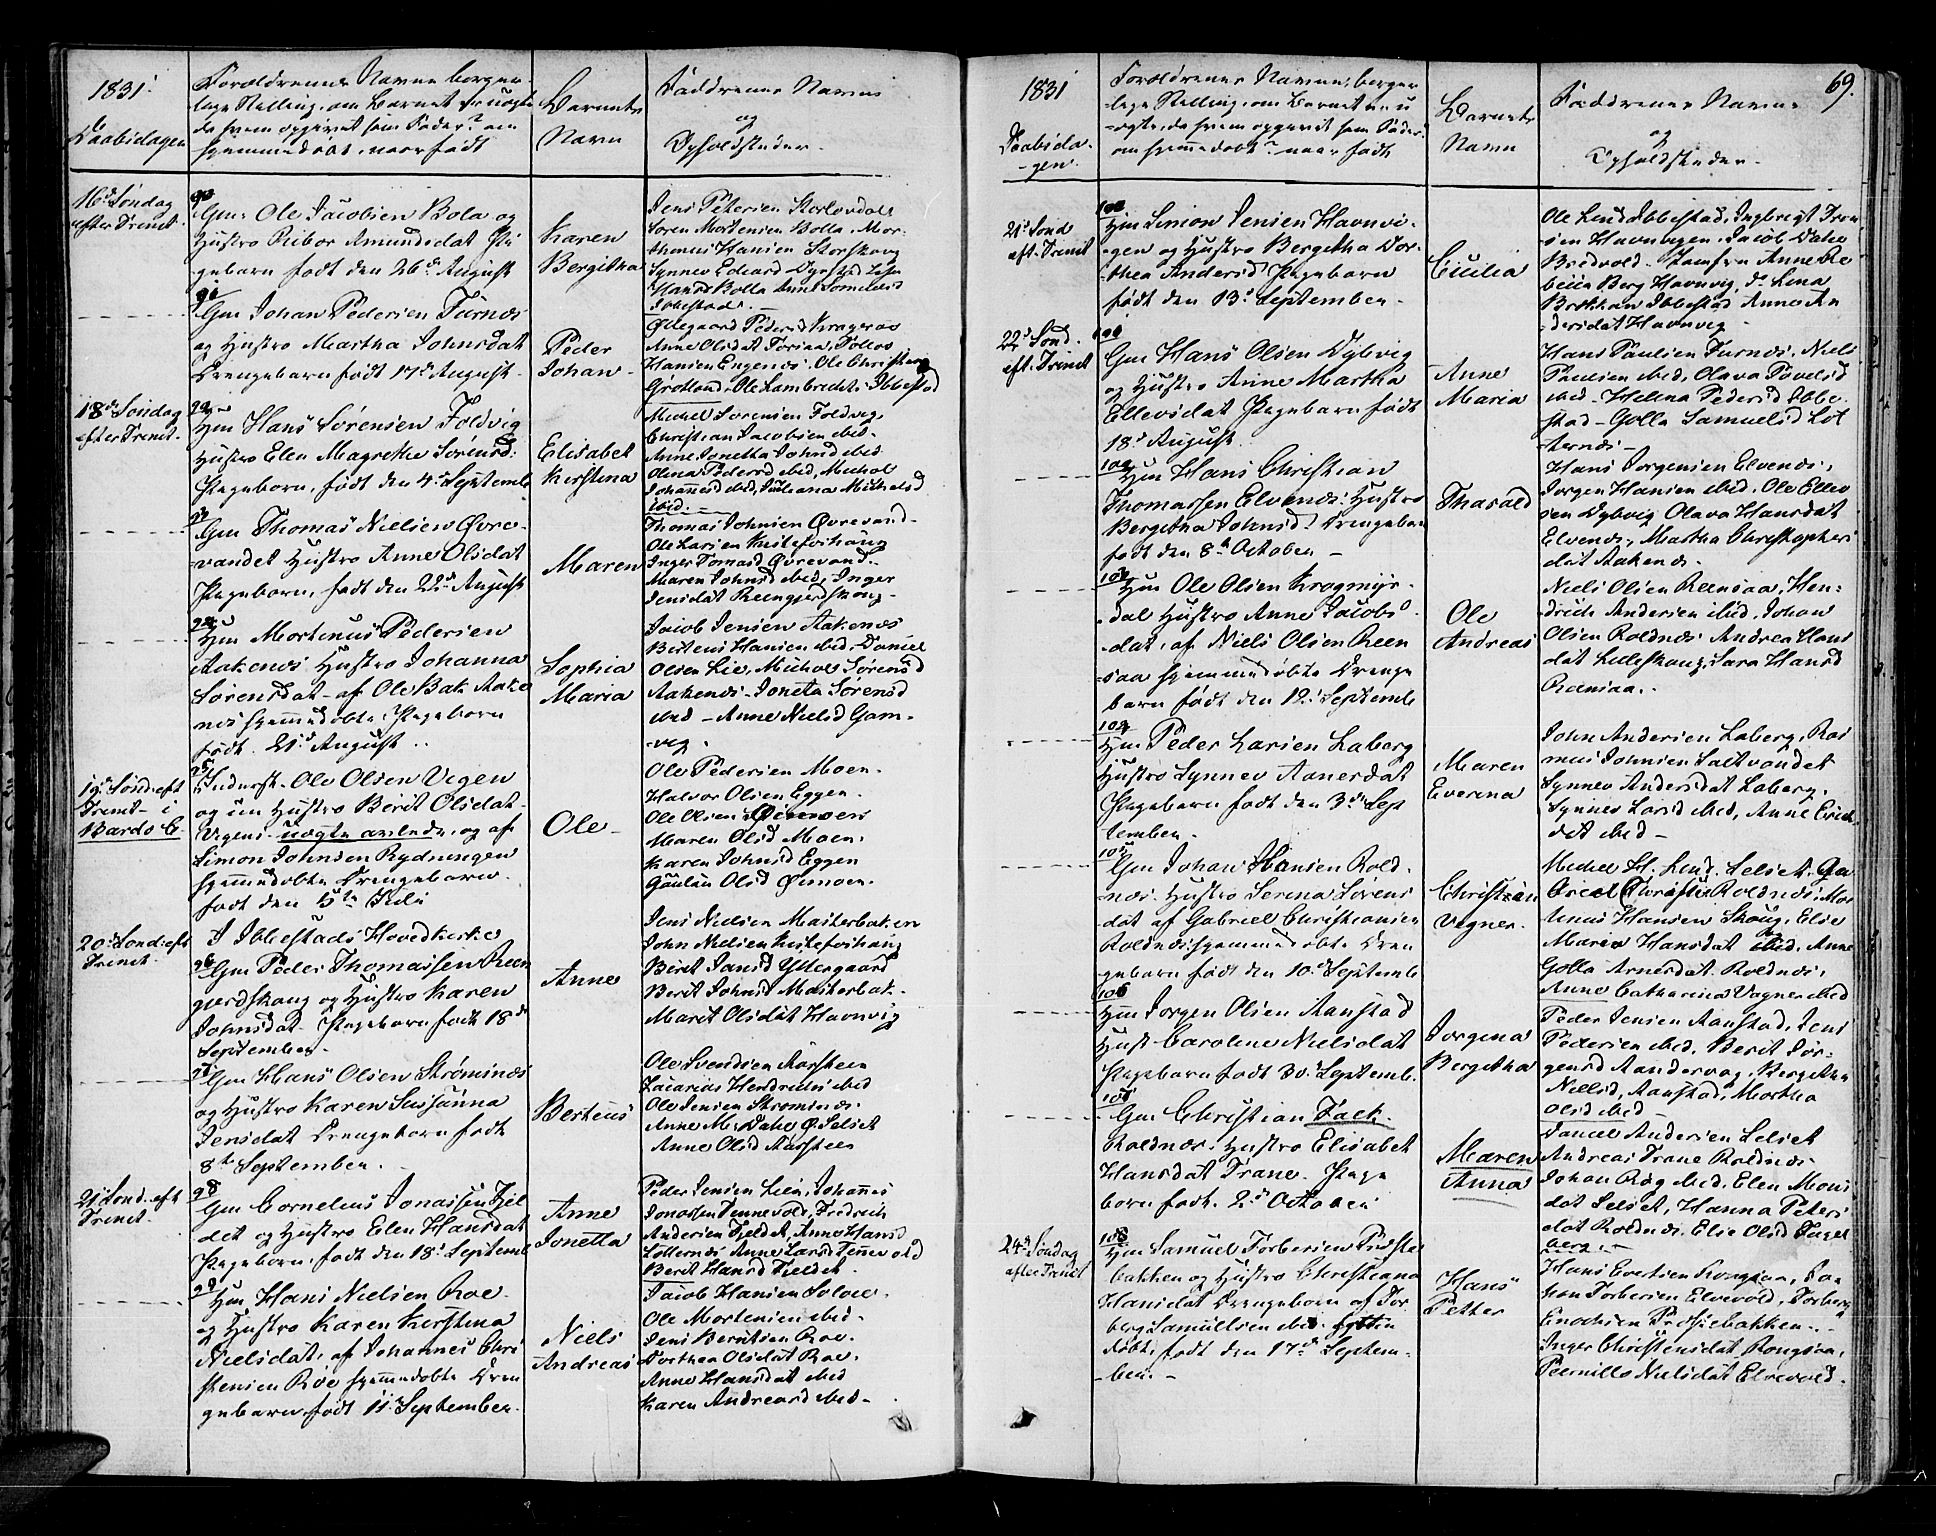 1831.
Daabsdagen
Forældrenes Navne borger-
lige Stilling, om Barnet er uægte
da hvem opgivet som Fader? om
hjemmedøbt, naar født
Barnets
Navn
Faddrenes Navne
og
Opholdsteder.
16de Søndag
efter Trinit.
90
Gm: Ole Jacobsen Bola og
Hustro Ribor Amundsdat Pi
gebarn født den 26de August
Karen
Bergitha
Jens Petersen Storlovdal
Søren Mortensen Bolla, Mor-
thenus Hansen Storskog
Synnev Edvard
Hans Bolla Anne
Ibbestad.
91
Gm Johan Pedersen Furnes
og Hustro Martha Johnsdat
Drengebarn født 17de August.
Peder
Johan
Øllegaard Pedersd Krogerøe
Anne Olsdat
Hansen Engenes. Ole Christians
Grotland. Ole Lambrechts Ibbestad
18de Søndag
efter Trinit.
92
Hm Hans Sørensen Foldvig
Hustro Elen Magrethe Sørensd:
Pigebarn, født den 4de Septemb
Elisabet
Kirstina
Michel Sørensen Foldvig,
Christian Jacobsen ibid.
Anne Jonetta Johnsd ibid
Olina Pedersd ibid, Michol
Johannesd ibid, Juliana Michelsd
ibid.
93
Gm Thomas Nielsen Øvre-
vandet Hustro Anne Olsdat
Pigebarn, født den 22de August
Maren
Thomas Johnsen Øvrevand-
Ole Larsen Kistefoshaug
Inger Tomasd Øvrevand.
Maren Johnsd ibid, Inger
Jensdat Reengjerdskoug-
94
Hm Mortinus Pedersen
Aakenes Hustro Johanna
Sørensdat. af Ole Bak Aake
nes hjemmedøbte Pigebarn
født. 21de August
Sophia
Maria
Jacob Jensen Aakenes
Bertens Hansen ibid, Daniel
Olsen Lie, Michol Sørensd
Aakenes. Joneta Sørensd
ibid - Anne Nielsd Gam-
vig.
19de Sønd. eft
Trinit. i
Bardo C.
95
Inderst. Ole Olsen Vegen
og un Hustro Berit Olsdat
Vegen. uægte avlede, og af
Simon Johnsen Rydningen
hjemmedøbte Drengebarn.
født den 5te Juli
Ole
Ole Pedersen Moen.
Halvor Olsen Eggen.
Ole Olsen
Maren Olsd Moen.
Karen Johnsd Eggen
Olsd
20de Sønd: eft
Trinit.
I Ibbestads Hovedkirke
96
Gm Peder Thomassen Reen
gjerdskoug og Hustro Karen
Johnsdat Pigebarn født 18de
September
Anne
Jens Nielsen Masterbaken
John Nielsen Kistefoshaug
Berit Jansd Yttergaard
Berit Johnsd Masterbak-
Marit Olsdat Havnvig
97
Gm Hans Olsen Strømmes
og Hustro Karen Susanna
Jensdat Drengebarn født
8de September.
Berteus
Ole Svendsen Aarsteen
Zacarias Hendrichs ibid
Ole Jensen Strømmes.
Anne M. Dahl Ø. Selset
Anne Olsd Aarsteen
21de Sønd. eft
Trinit.
98
Gm Cornelius Jonassen Fjel
det og Hustro Elen Hansdat
Pigebarn, født den 18de Septemb
Anne
Jonetta
Peder Jensen Lien, Johannes
Jonassen Tennevold, Fredrich
Andersen Fjeldet, Anne Hansd
Løkternes Anne Larsd Tennevold
Berit Hansd Fjeldet.
99
Hm Hans Nielsen Roe.
og Hustro Karen Kirstina
Nielsdat. af Johannes Chri
stensen Roe hjemmedøbte Dren
gebarn født 11te September.
Niels
Andreas
Jacob Hansen Solvie.
Ole Mortensen ibid.
Jens Berntsen Roe.
Dorthea Olsdat Roe.
Anne Hansdat ibid
Karen Andreasd ibid-
69.
1831
Daabsda-
-gen.
Forældrenes Navne, borger
lige Stilling, om Barnet er u
ægte, da hvem opgivet som Fader.
om hjemmedøbt? naar født
Barnets
Navn
Faddrenes Navne
og
Opholdsteder.
21de Sønd
eft. Trinit
100
Hm Simon Jensen Havnvi-
gen og Hustro Bergitha Dor-
thea Andersd Pigebarn
født den 13de September.
Cicilia
Ole Lund Ibbestad, Ingbrigt Iver
sen Havnvigen. Jacob Dahl
Bredvold. Jomfru Anne Re
becca Berg Havnvig, do Lena
Brothkaw Ibbestad Anne An
dersdat Havnvig
22de Sønd.
eft. Trinit
101
Gm Hans Olsen Dybvig
og Hustro Anne Martha
Ellevsdat Pigebarn født
18de August.
Anne
Maria
Hans Paulsen Furnes, Niels
Paulsen ibid, Olava Povelsd
ibid - Helena Pedersd Ibbe-
stad - Golla Samuelsd Løk
ternes
102
Hm Hans Christian
Thomassen Elvenes: Hustro
Bergitha Johnsd: Drengebar
født den 8de October
Tharald
Hans Jørgensen Elvenes,
Jørgen Hansen ibid. Ole Ellev
sen Dybvig Olava Hansdat
Elvenes, Martha Christophers
dat Aakenes.
103
Hm Ole Olsen Krogmyr-
dal Hustro Anne Jacobs
dat. af Niels Olsen Reen
saa hjemmedøbte Drenge
barn født den 12de Septemb
Ole
Andreas
Niels Olsen Reensaa, Hen-
drich Andersen ibid. Johan
Olsen Roldnes Andrea Hans
dat Lilleskoug, Sara Hansd
Rensaa.
104
Hm Peder Larsen Laberg
Hustro Synnev Aanersdat
Pigebarn født den 3de Sep
tember.
Maren
Everina
John Andersen Laberg, Ras
mus Johnsen Saltvandet
Synnev Andersdat Laberg,
Synnev Larsd ibid, Anne Erich
dat ibid
105
Gm Johan Hansen Rold
nes. Hustro Serina Sørens
dat af Gabriel Christiansen
Roldnes hjemmedøbte Dren
gebarn født den 10de Septemb
Christian
Vegner.
Michel H. Lund. Selset. Ga
briel Christians Roldnes, Mor
tinus Hansen Skoug, Elie
Maria Hansdat ibid, Anne
Golla Arnesdat Roldnes,
Anne Catharina Vagner ibid
106
Hm Jørgen Olsen Aanstad
Hust Caroline Nielsdat
Pigebarn født 30de Septemb.
Jørgina
Bergitha
Peder Jensen Aanstad, Jens
Pedersen ibid, Berit Jør-
gensd Aandervag, Bergitha
Nielsd, Aanstad, Martha
Olsd ibid
107
Gm Christian Falk
Roldnes. Hustro Elisabet
Hansdat Trane. Pige
barn født. 2de October
Maren
Anna
Daniel Andersen Selset
Andreas Trane Roldnes
Johan Røg ibid. Elen Mons
dat Selset, Hanna Peters
dat Roldnes Elie Olsd Fugel
berg.
24de Søndag
efter Trinit
108
Hm Samuel Torbersen Prøste
bakken og Hustro Christiana
Hansdat Drengebarn af Tor
berg Samuelsen ibid hjem
døbt, født den 17de Septem-
ber.
Hans
Petter
Hans Evertsen Rongsaa, Joa
Torbersen Elvevold, Torberg
Enochsen Prøstebakken.
Inger Christensdat Rongsaa,
Pernille Nielsdat Elvevold.